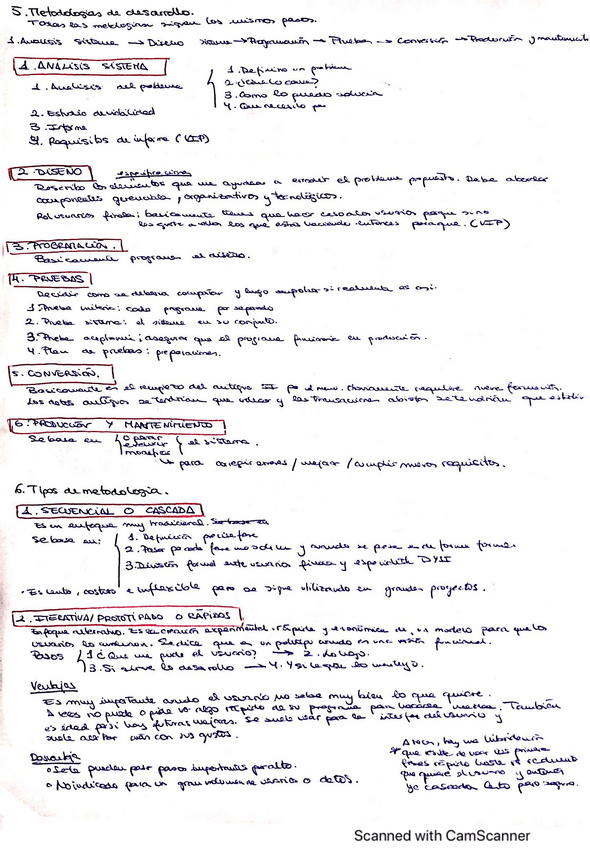 5. Metodologías de desarrollo.
Todas las metologías siguen los mismos pasos.
1. Analisis sistema → Diseño sistema → Programación → Pruebas → Conversión → Producción y mantenimiento
1. ANÁLISIS SISTEMA
1. Analisis del problema
1. Definirse un problema
2. ¿Que lo causa?
3. Como lo puedo solucionar
4. Que necesito
2. Estudio de viabilidad
3. Informe
4. Requisitos de informe (VIP)
2. DISEÑO
especificaciones
Describo los elementos que me ayudaran a el problema propuesto. Debe abordar
componentes gerenciales, organizativos y tecnológicos.
Rol usuarios finales: basicamente tienes que hacer caso a los usuarios porque si no
les gusta a ellos lo que estás haciendo entonces para que. (VIP)
3. PROGRAMACIÓN.
Basicamente programar el diseño.
4. PRUEBAS
Decidir como se debería comportar y luego comprobar si realmente es así.
1. Prueba unitaria: cada programa por separado
2. Prueba sistema: el sistema en su conjunto.
3. Prueba aceptación: asegurar que el programa funcione en producción.
4. Plan de pruebas: preparaciones.
5. CONVERSIÓN.
Basicamente es el remplazo del antiguo SI por el nuevo. Normalmente requiere nueva formación.
Los datos antiguos se tendrían que volcar y las transacciones abiertas se tendrían que
6. PRODUCCIÓN Y MANTENIMIENTO
Se basa en
operar
evaluar
modificar
el sistema.
↳ para corregir errores / mejorar / cumplir nuevos requisitos.
6. Tipos de metodología.
1. SECUENCIAL O CASCADA
Es un enfoque muy tradicional. Se basa en
Se basa en:
1. Definición precisa fase
2. Pasar por cada fase una sola vez y cuando se pasa es de forma formal
3. División formal entre usuarios finales y especialistas DYSI
· Es lento, costoso e inflexible pero se sigue utilizando en grandes proyectos.
2. ITERATIVA/PROTOTIPADO O RÁPIDAS
Enfoque alternativo. Es la creación experimental, rápida y económica de un modelo para que los
usuarios lo evaluen. Se dice que es un prototipo cuando es una versión funcional.
Pasos
1. ¿Que me pide el usuario? → 2. Lo hago.
3. Si sirve lo desarrollo → 4. Y si le gusta lo mejoro.
Ventajas
Es muy importante cuando el usuario no sabe muy bien lo que quiere.
A veces no puede o pide ver algo rápido de su programa para hacerse idea. También
es ideal para si hay futuras mejoras. Se suele usar para la interfaz del usuario y
suele acertar más con sus gustos.
Desventaja
· Se le pueden pasar pasos importantes por alto.
· No indicado para un gran volumen de usuarios o datos.
Ahora, hay una hibridación
* que es de usar las primeras
fases rápido hasta
que quiere el usuario y entonces
ya cascada lento pero seguro.
Scanned with CamScanner